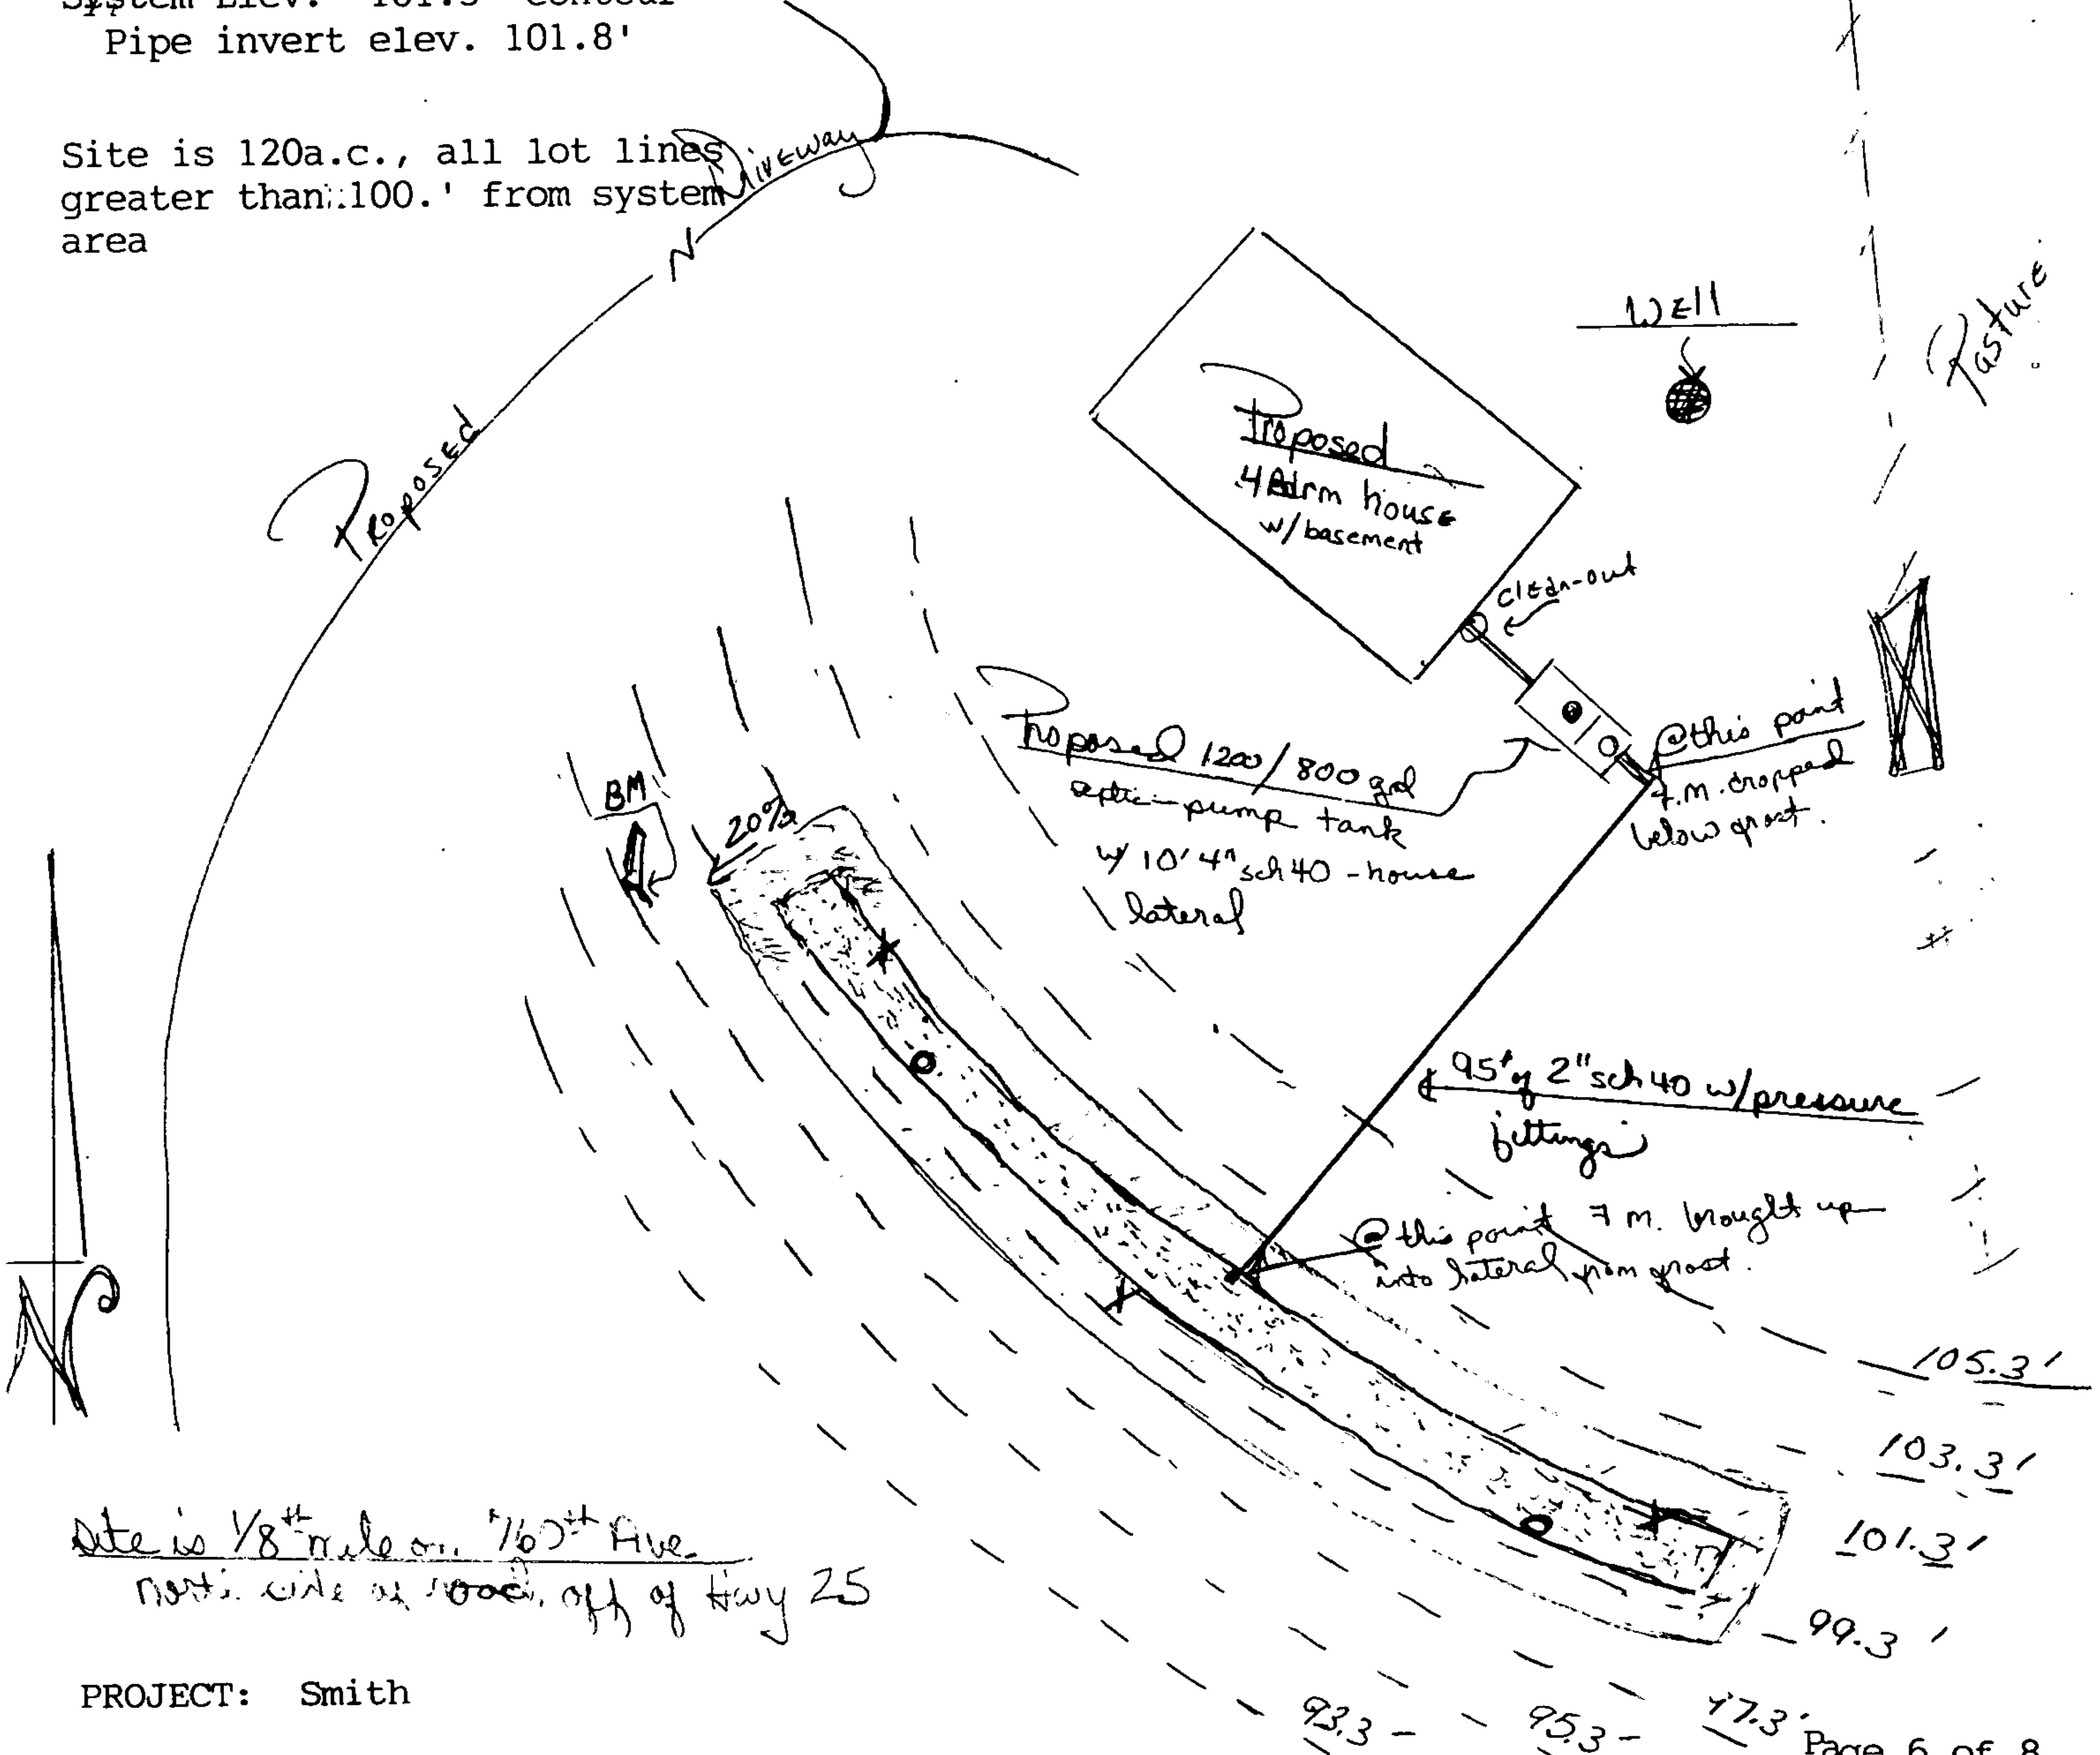 System Elev. 101.3' Contour
Pipe invert elev. 101.8'
Site is 120a.c., all lot lines
greater than 100.' from system
area
Proposed Driveway
N
Well
Pasture
Proposed
4 Bdrm house
w/ basement
clean-out
@ this point
f.m. dropped
below frost.
Proposed 1200/800 gal
septic-pump tank
w/ 10' 4" sch 40 - house
lateral
BM
20%
95' of 2" sch 40 w/pressure
fittings
@ this point F m. brought up
into lateral from frost.
105.3'
103.3'
101.3'
99.3'
97.3'
95.3
93.3
N
Site is 1/8th mile on Ave.
side of road, off of Hwy 25
PROJECT: Smith
Page 6 of 8